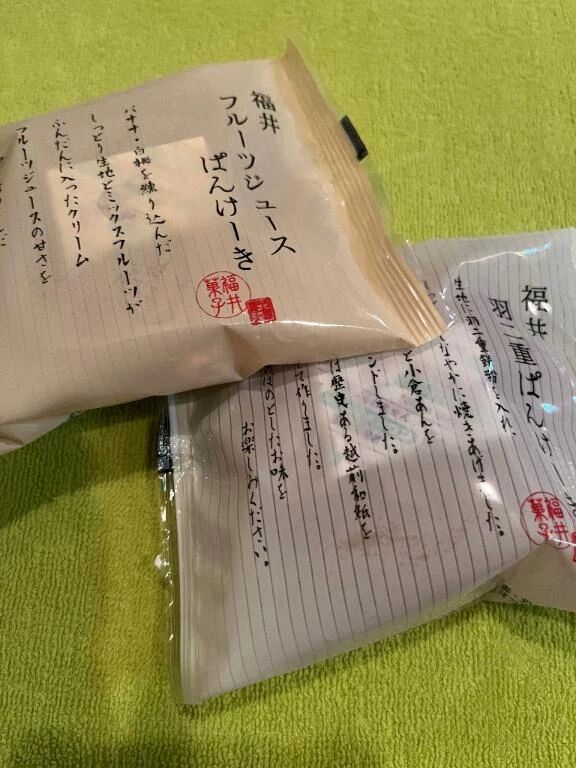 福井
フルーツジュース
ぱんけーき
バナナ・白桃を練り込んだ
しっとり生地とミックスフルーツが
ふんだんに入ったクリーム
フルーツジュースの甘さを
福井
菓子
福井
羽二重ぱんけーき
生地に羽二重餅粉を入れ、
しなやかに焼きあげました。
と小倉あんを
ンドしました。
は歴史ある越前和紙を
て作りました。
ほのぼのとしたお味を
お楽しみください。
福井
菓子